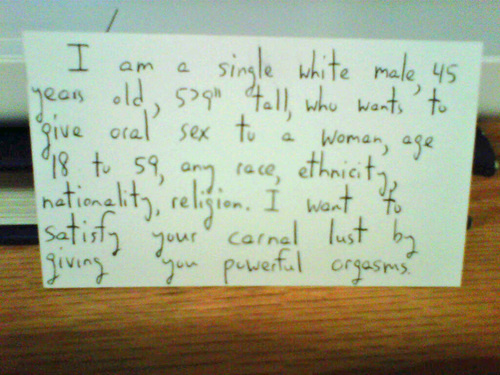 I am a single white male, 45
years old, 5'9" tall, who wants to
give oral sex to a woman, age
18 to 59, any race, ethnicity,
nationality, religion. I want to
satisfy your carnal lust by
giving you powerful orgasms.